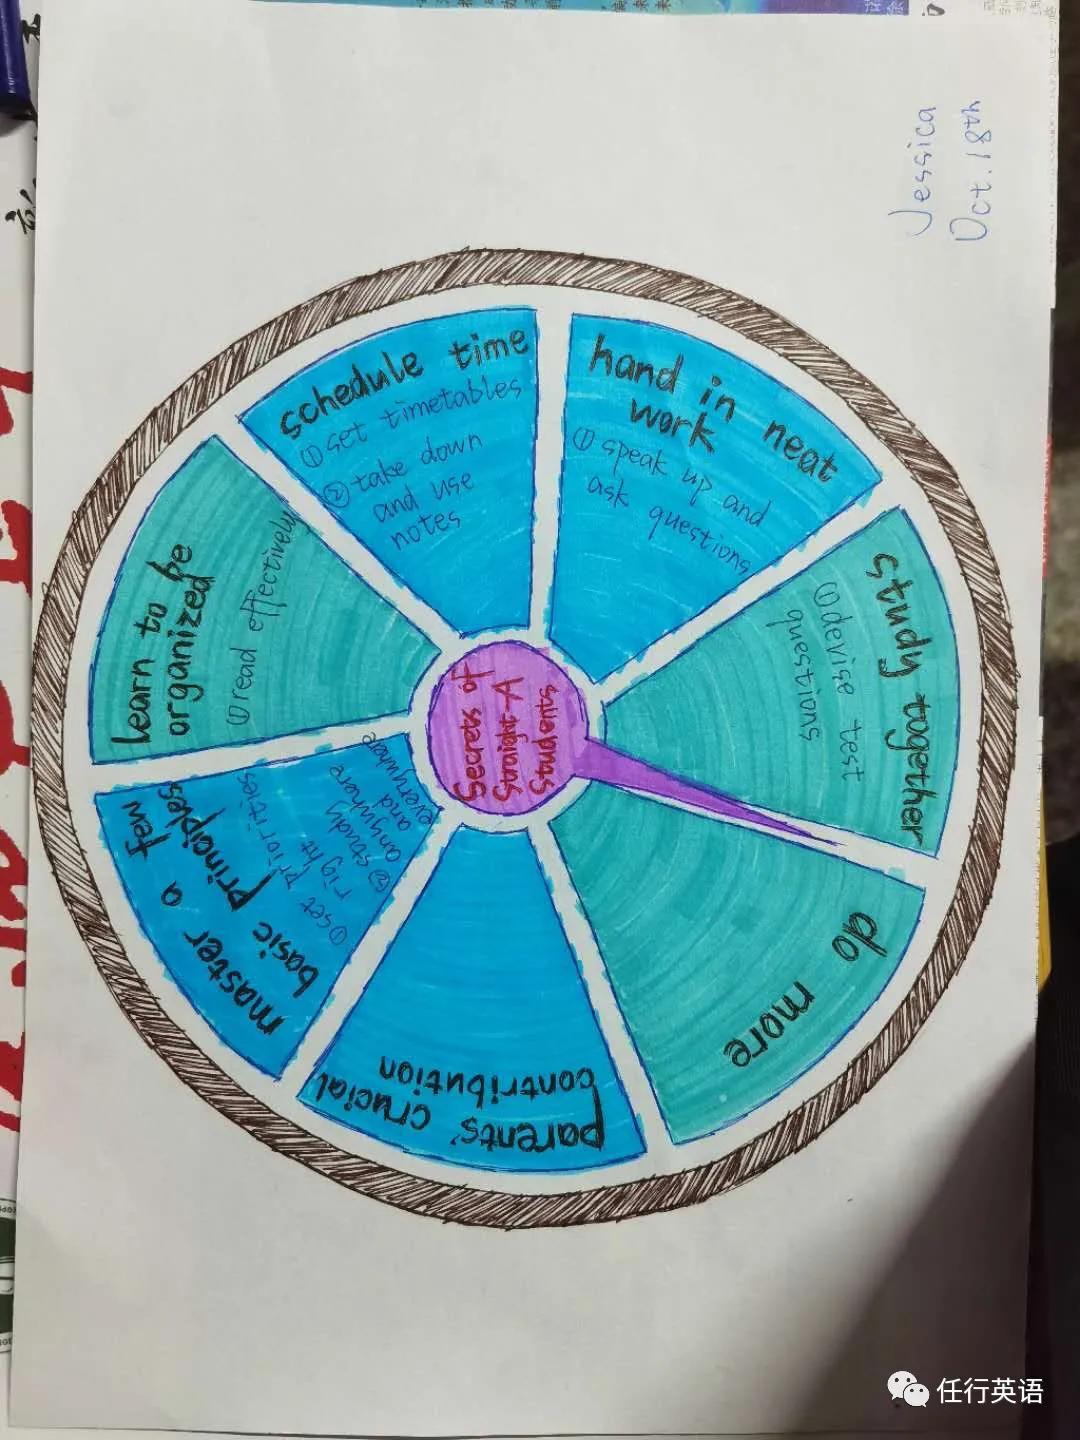 Jessica
Oct. 18th
Secrets of
Straight-A
Students
schedule time
①set timetables
②take down
and use
notes
hand in neat
work
① speak up and
ask questions
study together
①devise test
questions
do more
parents' crucial
contribution
master a few
basic principles
①set priorities
right
②study
anywhere
and
everywhere
learn to be
organized
①read effectively
任行英语